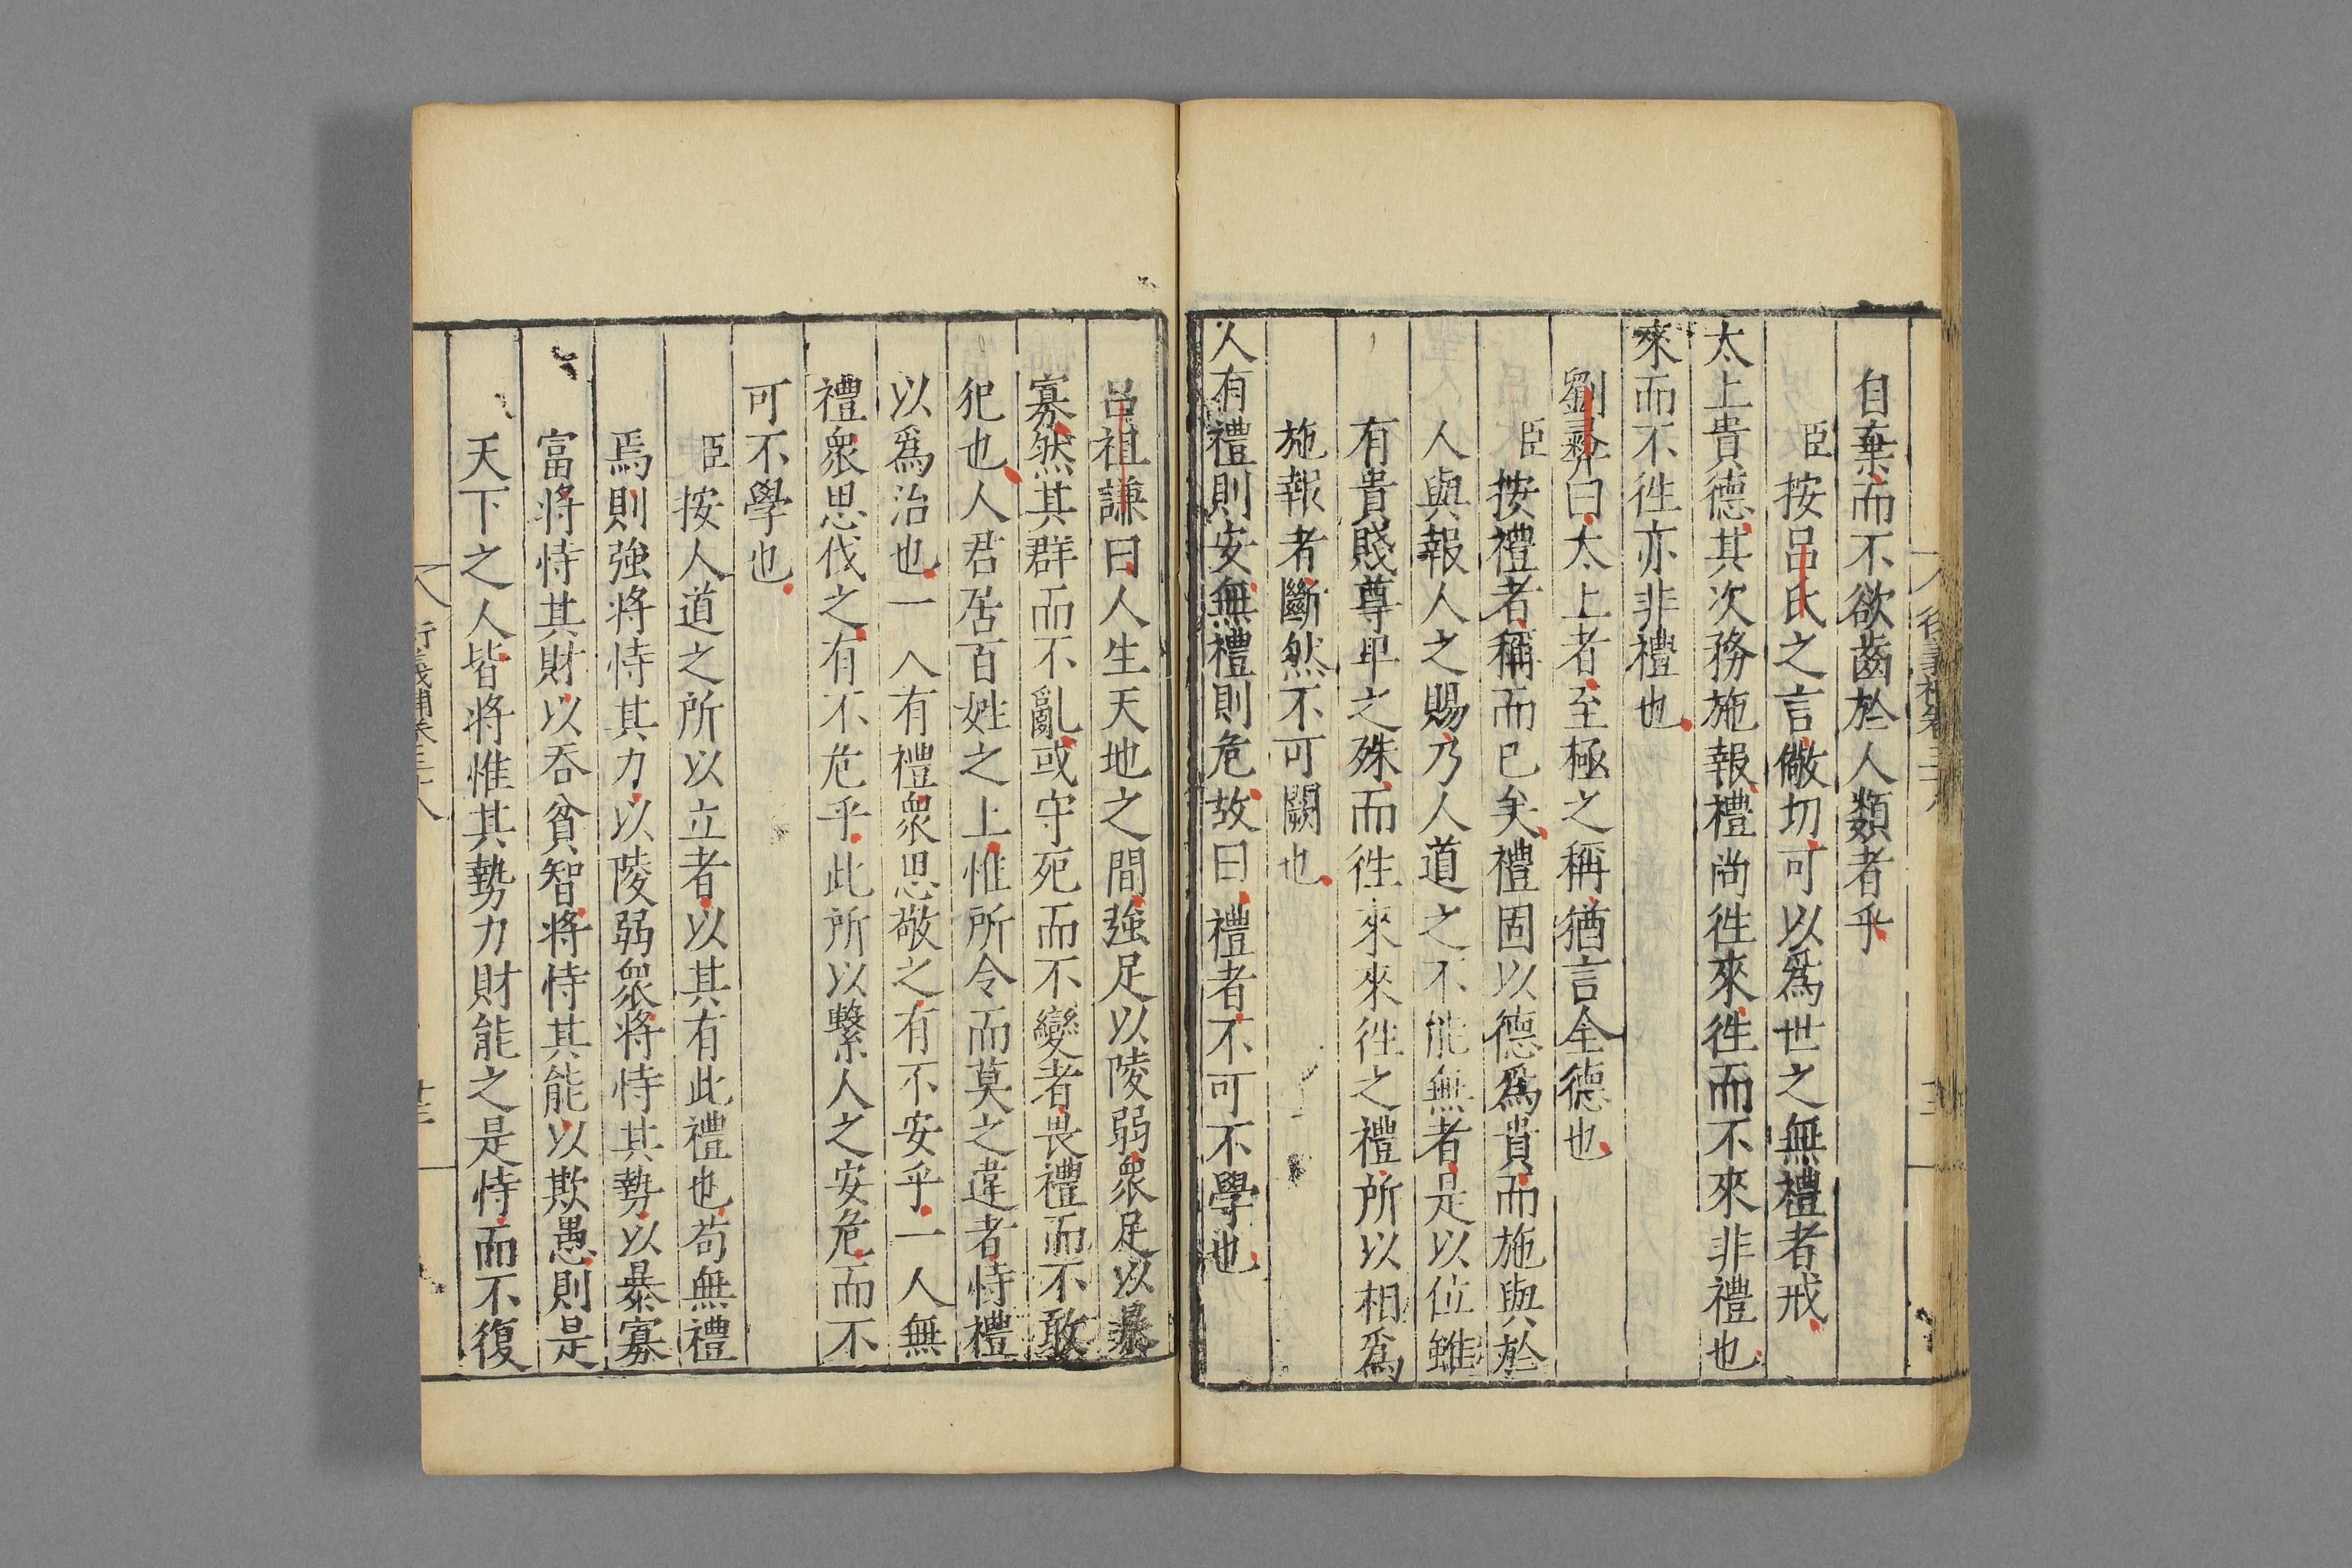 自棄而不欲齒於人類者乎
臣按呂氏之言儆切可以爲世之無禮者戒
太上貴德其次務施報禮尚徃來徃而不來非禮也
來而不徃亦非禮也
劉彞曰太上者至極之稱猶言全德也
臣按禮者稱而已矣禮固以德爲貴而施與於
人與報人之賜乃人道之不能無者是以位雖
有貴賤尊卑之殊而徃來來徃之禮所以相爲
施報者斷然不可闕也
人有禮則安無禮則危故曰禮者不可不學也
呂祖謙曰人生天地之間強足以陵弱衆足以暴
寡然其群而不亂或守死而不變者畏禮而不敢
犯也人君居百姓之上惟所令而莫之違者恃禮
以爲治也一人有禮衆思敬之有不安乎一人無
禮衆思伐之有不危乎此所以繫人之安危而不
可不學也
臣按人道之所以立者以其有此禮也苟無禮
焉則強將恃其力以陵弱衆將恃其勢以暴寡
富將恃其財以吞貧智將恃其能以欺愚則是
天下之人皆將惟其勢力財能之是恃而不復